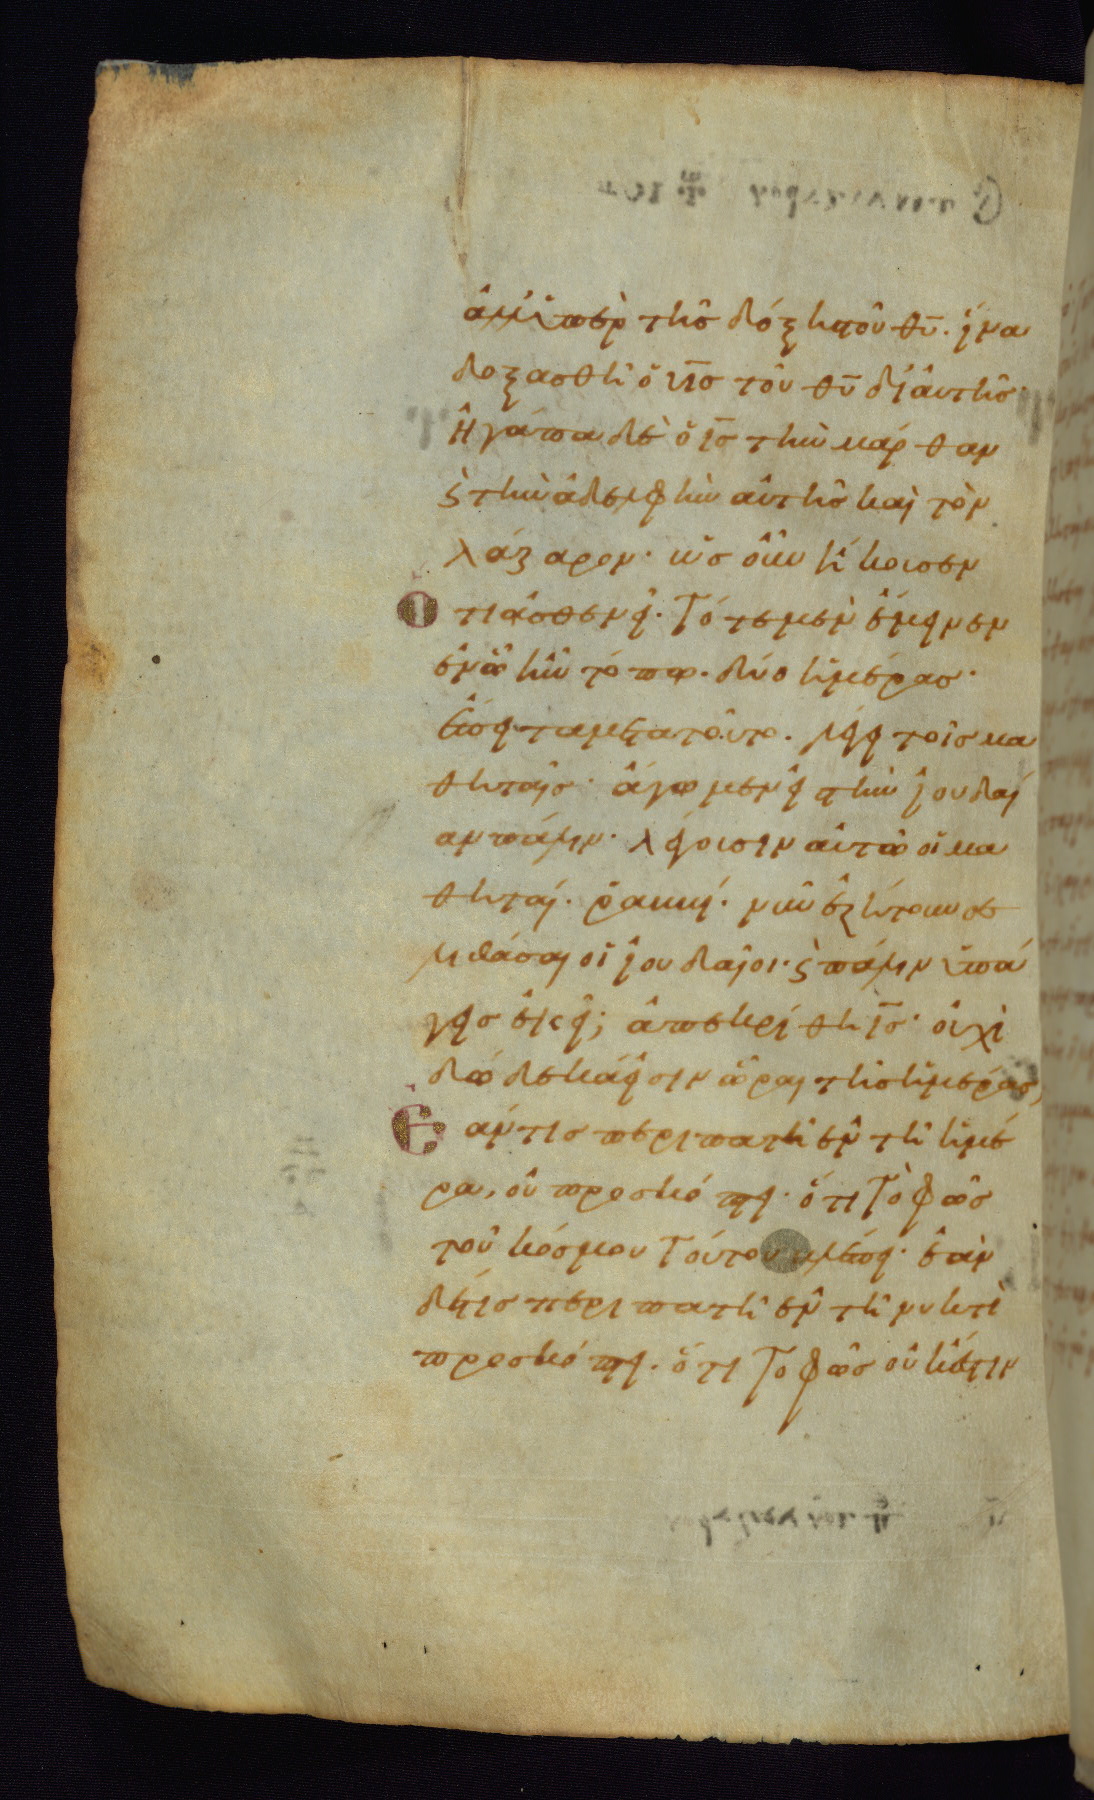 ἀλλ' ὑπὲρ τῆς δόξης τοῦ θ̅υ̅. ἵνα
δοξασθῆ ὁ υ̅ς̅ τοῦ θ̅υ̅ δι' αὐτῆς·
Ἠγάπα δὲ ὁ ι̅ς̅ τὴν μάρθαν
ϛ τὴν ἀδελφὴν αὐτῆς καὶ τὸν
λάζαρον· ὡς οὖν ἤκουσεν
ὅτι ἀσθενεῖ. τότε μὲν ἔμεινεν
ἐν ὧ ἦν τόπω. δύο ἡμέρας·
ἔπειτα μετὰ τοῦτο. λέγει τοῖς μα
θηταῖς· ἄγωμεν εἰς τὴν ἰουδαί
αν πάλιν· λέγουσιν αὐτῶ οἱ μα
θηταί. ῥαββί. νῦν ἐζήτουν σε
λιθάσαι οἱ ἰουδαῖοι. ϛ πάλιν ὑπά
γεις ἐκεῖ; ἀπεκρίθη ι̅ς̅· οὐχὶ
δώδεκά εἰσιν ὧραι τῆς ἡμέρας;
Ἐάν τις περιπατῆ ἐν τῆ ἡμέ
ρα, οὐ προσκόπτει· ὅτι τὸ φῶς
τοῦ κόσμου τούτου βλέπει· ἐὰν
δέ τις περιπατῆ ἐν τῆ νυκτὶ
προσκόπτει. ὅτι τὸ φῶς οὐκ ἔστιν